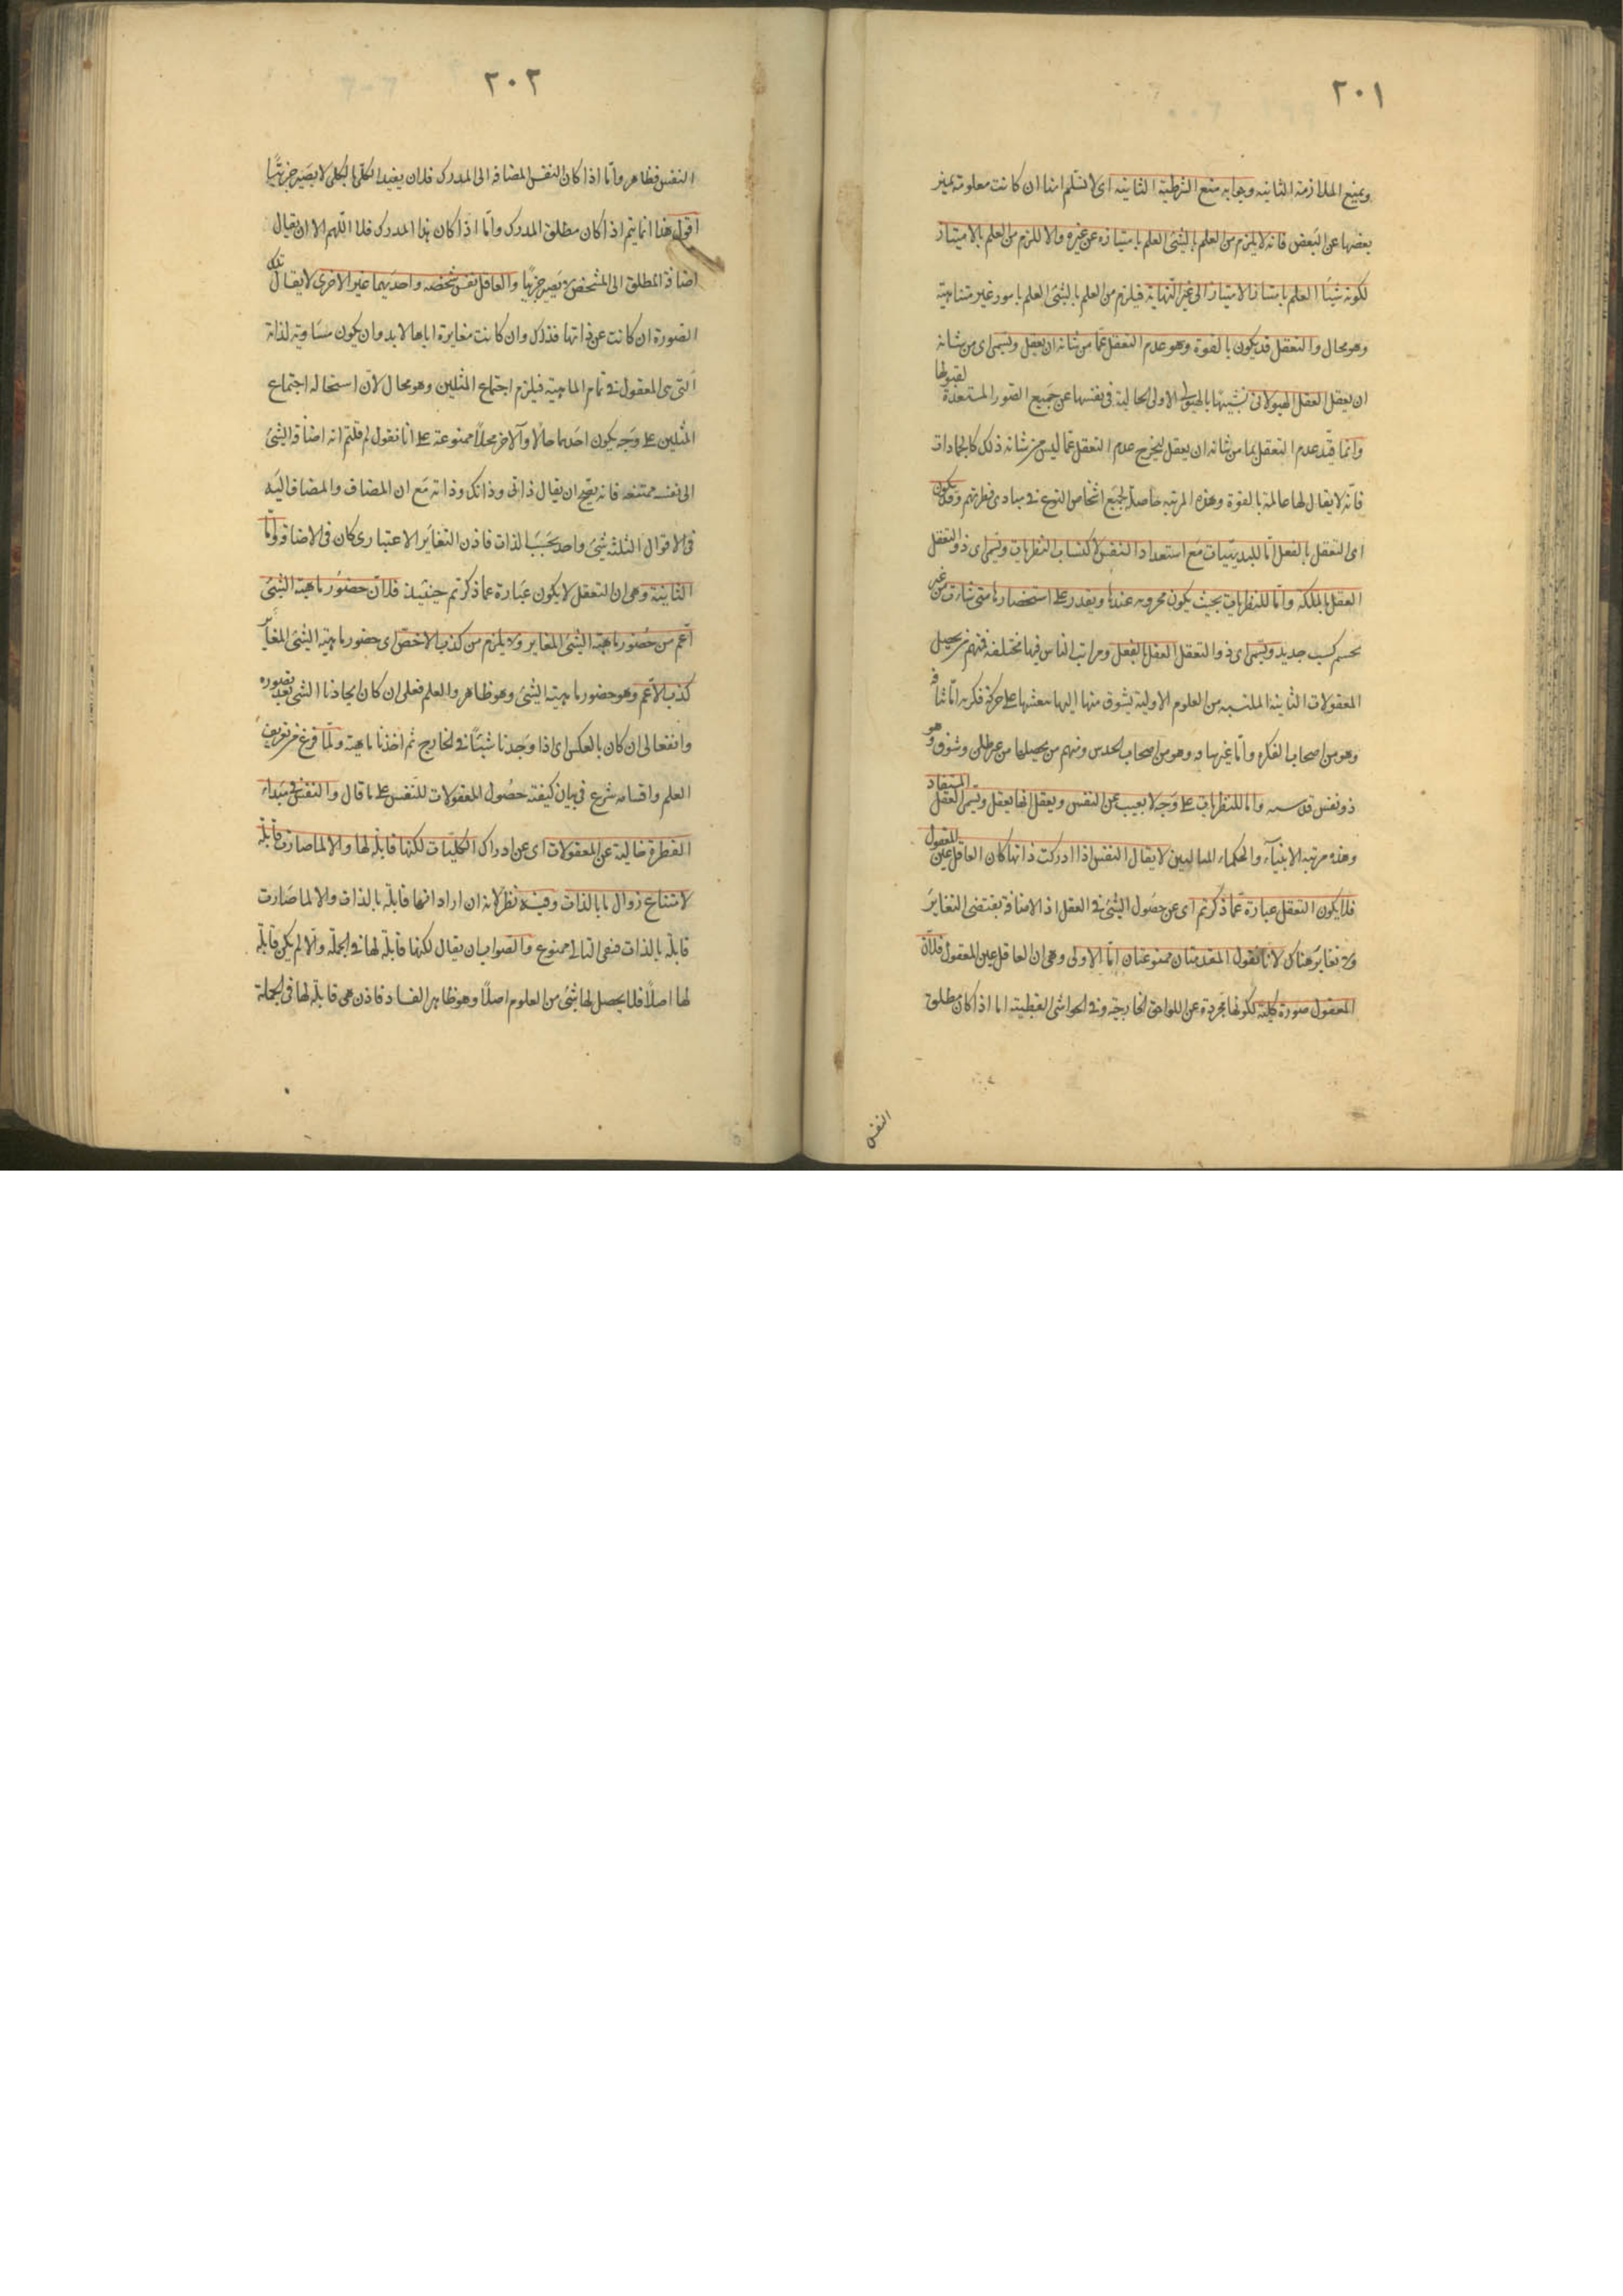 ٢٠١
ويمنع الملازمة الثانيه وجوابه منع الشرطية الثانيه اى لا نسلم انها ان كانت معلومة تميز
بعضها عن البعض فانه لا يلزم من العلم بالشئ العلم بامتيازه عن غيره والا للزم من العلم بالامتياز
لكونه شيئا العلم بامتياز الامتياز الى غير النهاية فيلزم من العلم بالشئ العلم بامور غير متناهية
وهو محال والتعقل قد يكون بالقوة وهو عدم التعقل عما من شانه ان يعقل ويسمى اى من شانه
ان يعقل العقل الهيولانى تشبيها بالهيولى الاولى الخالية فى نفسها عن جميع الصور المستعدة لقبولها
وانما قيد عدم التعقل بما من شانه ان يعقل ليخرج عدم التعقل عما ليس من شانه ذلك كالجمادات
فانه لا يقال لها عالمة بالقوة وهذه المرتبه حاصلة لجميع اشخاص النوع فى مبادى فطرتهم وقد يكون
اى التعقل بالفعل اما للبديهيات مع استعداد النفس لاكتساب النظريات ويسمى اى ذو التعقل
العقل بالملكة واما للنظريات بحيث يكون مخزونه عندها ويقدر على استحضارها متى شاءت من غير
تجشم كسب جديد ويسمى اى ذو التعقل العقل بالفعل ومراتب الناس فيها مختلفة فمنهم من يحصل
المعقولات الثانية المكتسبه من العلوم الاولية بشوق منها اليها يبعثها على حركة فكريه
وهو من اصحاب الفكره واما وهو من اصحاب الحدس ومنهم من يحصلها من غير طلب وشوق وهو
ذو نفس قدسيه واما للنظريات على وجه لا يغيب عن النفس ويعقل انها يعقل ويسمى العقل المستفاد
وهذه مرتبه الانبيآء والحكماء لا يقال النفس اذا ادركت ذاتها كان العاقل عين المعقول
فلا يكون التعقل عبارة عما ذكرتم اى عن حصول الشئ فى العقل اذ الاضافة يقتضى التغاير
ولا تغاير هناك لانا نقول المقدمتان ممنوعتان اما الاولى وهى ان العاقل عين المعقول فلان
المعقول صورة كلية لكونها مجردة عن اللواحق الخارجية وفى الحواشى القطبية اما اذا كان مطلق
النفس
٢٠٢
النفس فظاهر واما اذا كان النفس المضافه الى المدرك فلان يفيد الكلى بالكلى لا يصير جزئيا
اقول هذا انما يتم اذا كان مطلق المدرك واما اذا كان هذا المدرك فلا اللهم الا ان يقال
اضافة المطلق الى المشخص لا يصير جزئيا والعاقل نفس شخصه واحديهما غير الاخرى لا يقال تلك
الصورة ان كانت عين ذاتها فذاك وان كانت مغايرة اياها لابد وان يكون مساوية لذاته
التى هى المعقول فى تمام الماهية فيلزم اجتماع المثلين وهو محال لان استحاله اجتماع
المثلين على وجه يكون احدهما حالا والاخر محلا ممنوعة على انا نقول لم قلتم انه اضافة الشئ
الى نفسه ممتنعه فانه يصح ان يقال ذاتى وذاتك وذاته مع ان المضاف والمضاف اليه
فى الاقوال الثلثه شئ واحد بحسب الذات فاذن التغاير الاعتبارى كاف فى الاضافة واما
الثانية وهى ان التعقل لا يكون عبارة عما ذكرتم حينئذ فلان حضور ماهية الشئ
اعم من حضور ماهية الشئ المغاير ولا يلزم من كذب الاخص اى حضور ماهية الشئ المغاير
كذب الاعم وهو حضور ماهية الشئ وهو ظاهر والعلم فعلى ان كان ايجادنا الشئ بعد تصوره
وانفعالى ان كان بالعكس اى اذا وجدنا شيئا فى الخارج ثم اخذنا ماهيته ولما فرغ من تعريف
العلم واقسامه شرع فى بيان كيفية حصول المعقولات للنفس على ما قال والنفس فى مبداء
الفطرة خالية عن المعقولات اى عن ادراك الكليات لكنها قابلة لها والا لما صارت قابلة
لامتناع زوال ما بالذات وفيه نظر لانه ان اراد انها قابلة بالذات والا لما صارت
قابلة بالذات فنفى التالى ممنوع والصواب ان يقال لكنها قابلة لها فى الجملة والا لم يكن قابلة
لها اصلا فلا يحصل لها شئ من العلوم اصلا وهو ظاهر الفساد فاذن هى قابلة لها فى الجملة